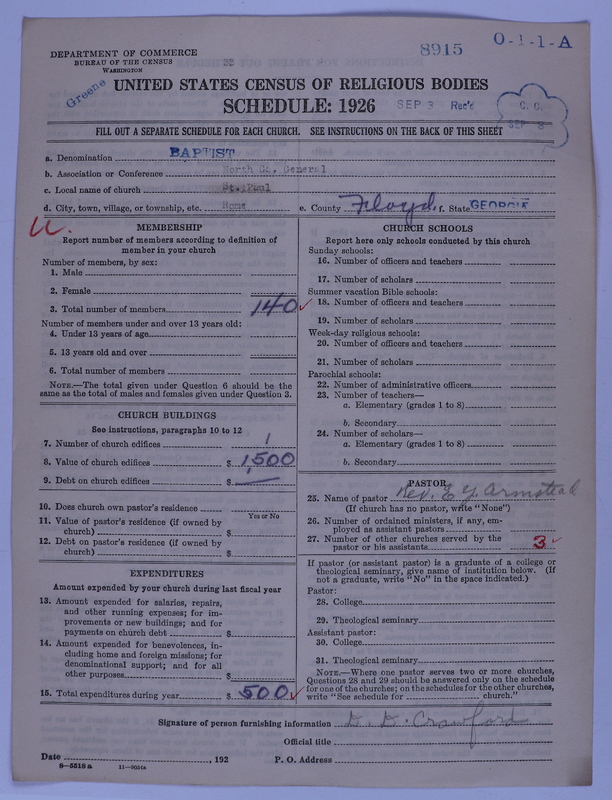 DEPARTMENT OF COMMERCE
BUREAU OF THE CENSUS
WASHINGTON
8915
O-1-1-A
Greene
UNITED STATES CENSUS OF RELIGIOUS BODIES
SCHEDULE: 1926
SEP 3 Rec'd
C. C.
SEP 8
FILL OUT A SEPARATE SCHEDULE FOR EACH CHURCH. SEE INSTRUCTIONS ON THE BACK OF THIS SHEET
a. Denomination BAPTIST
b. Association or Conference North Ga. General
c. Local name of church St. Paul
d. City, town, village, or township, etc. Rome e. County Floyd f. State GEORGIA
U.
MEMBERSHIP
Report number of members according to definition of
member in your church
Number of members, by sex:
1. Male
2. Female
3. Total number of members 140
Number of members under and over 13 years old:
4. Under 13 years of age
5. 13 years old and over
6. Total number of members
NOTE.—The total given under Question 6 should be
same as the total of males and females given under Question 3.
CHURCH BUILDINGS
See instructions, paragraphs 10 to 12
7. Number of church edifices 1
8. Value of church edifices $ 1,500
9. Debt on church edifices $ —
10. Does church own pastor's residence
Yes or No
11. Value of pastor's residence (if owned by
church) $
12. Debt on pastor's residence (if owned by
church) $
EXPENDITURES
Amount expended by your church during last fiscal year
13. Amount expended for salaries, repairs,
and other running expenses; for im-
provements or new buildings; and for
payments on church debt $
14. Amount expended for benevolences, in-
cluding home and foreign missions; for
denominational support; and for all
other purposes $
15. Total expenditures during year $ 500
CHURCH SCHOOLS
Report here only schools conducted by this church
Sunday schools:
16. Number of officers and teachers
17. Number of scholars
Summer vacation Bible schools:
18. Number of officers and teachers
19. Number of scholars
Week-day religious schools:
20. Number of officers and teachers
21. Number of scholars
Parochial schools:
22. Number of administrative officers
23. Number of teachers—
a. Elementary (grades 1 to 8)
b. Secondary
24. Number of scholars—
a. Elementary (grades 1 to 8)
b. Secondary
PASTOR
25. Name of pastor Rev. E. Y. Armstead
(If church has no pastor, write "None")
26. Number of ordained ministers, if any, em-
ployed as assistant pastors
27. Number of other churches served by the
pastor or his assistants 3
If pastor (or assistant pastor) is a graduate of a college or
theological seminary, give name of institution below. (If
not a graduate, write "No" in the space indicated.)
Pastor:
28. College
29. Theological seminary
Assistant pastor:
30. College
31. Theological seminary
NOTE.—Where one pastor serves two or more churches,
Questions 28 and 29 should be answered only on the schedule
for one of the churches; on the schedules for the other churches,
write "See schedule for church."
Signature of person furnishing information D. D. Crawford
Official title
Date , 192 P. O. Address
8—5518a